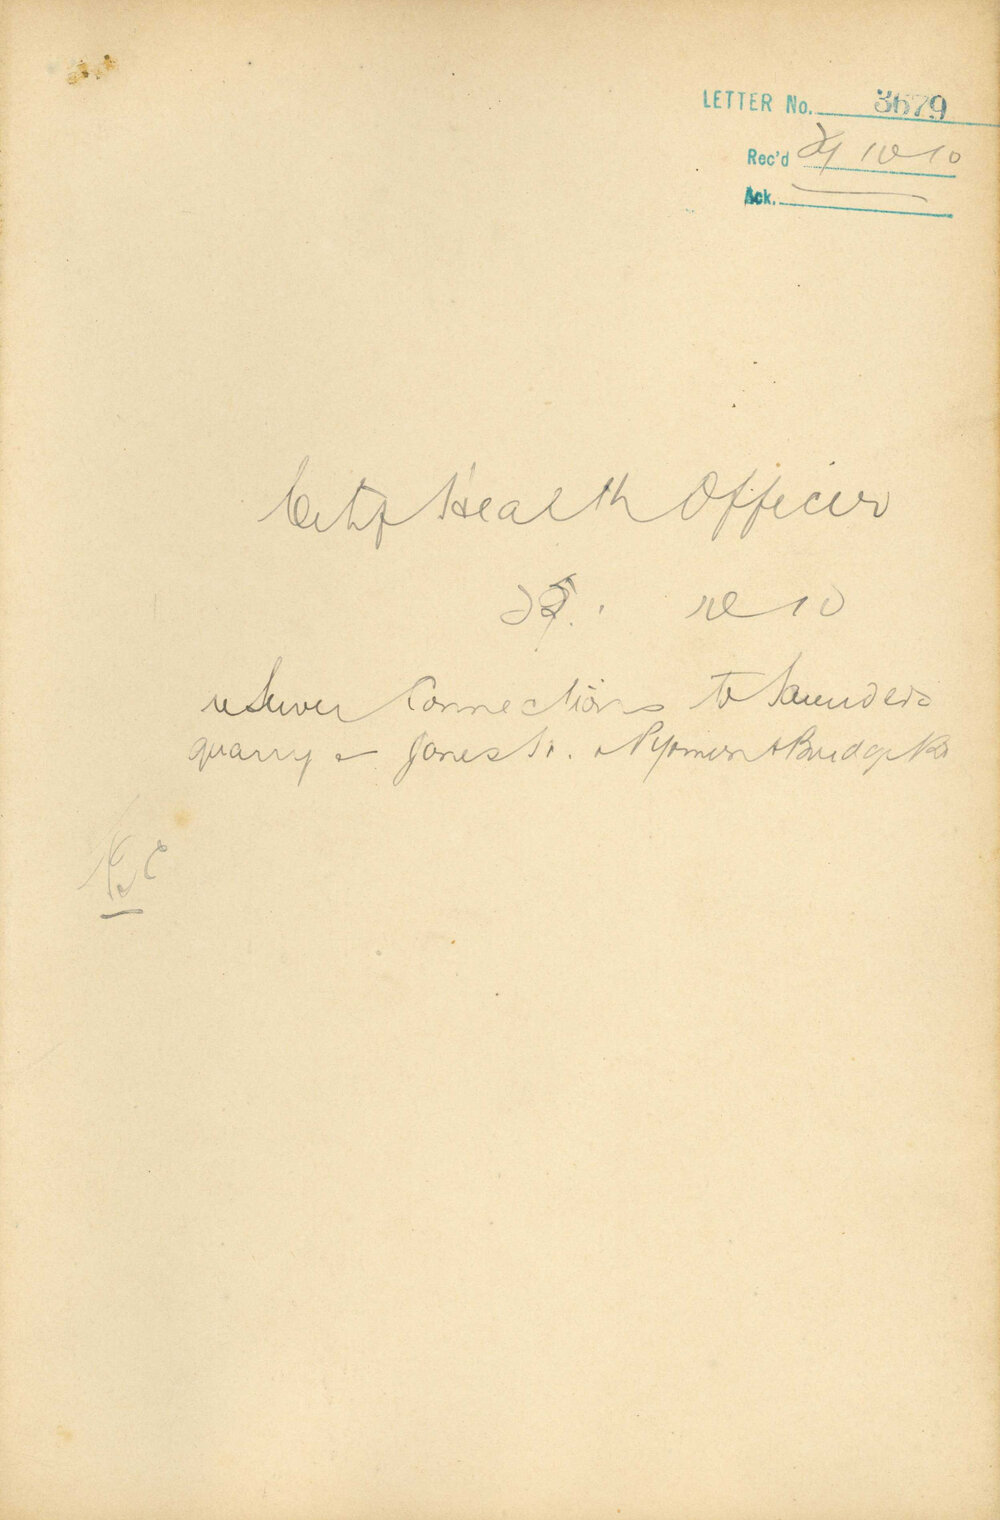 LETTER No. 3679
Rec'd 29 10 10
Ack.
City Health Officer
10 10
re Sewer Connections to Saunders
quarry & Jones St. & Pyrmont Bridge Rd